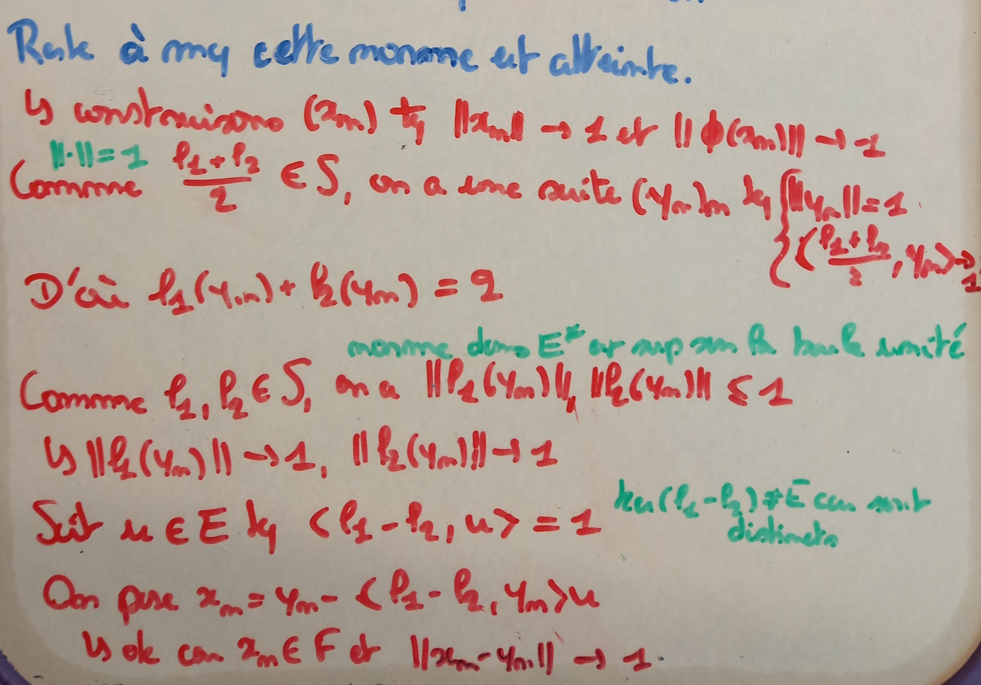 Reste à mq cette norme est atteinte.
↳ construisons (xₙ) tq ||xₙ|| → 1 et || ϕ(xₙ)|| → 1
||·||=1
Comme (f₁+f₂)/2 ∈ S, on a une suite (yₙ)ₙ tq { ||yₙ||=1
⟨(f₁+f₂)/2, yₙ⟩→1
D'où f₁(yₙ)+ f₂(yₙ) = 2
norme dans E* est sup sur la boule unité
Comme f₁, f₂ ∈ S, on a ||f₁(yₙ)||, ||f₂(yₙ)|| ≤ 1
↳ ||f₁(yₙ)|| → 1, ||f₂(yₙ)|| → 1
Soit u ∈ E tq ⟨f₁-f₂, u⟩ = 1
ker(f₁-f₂) ≠ E car sont
distincts
On pose xₙ = yₙ - ⟨f₁-f₂, yₙ⟩u
↳ ok car xₙ ∈ F et ||xₙ-yₙ|| → 1.